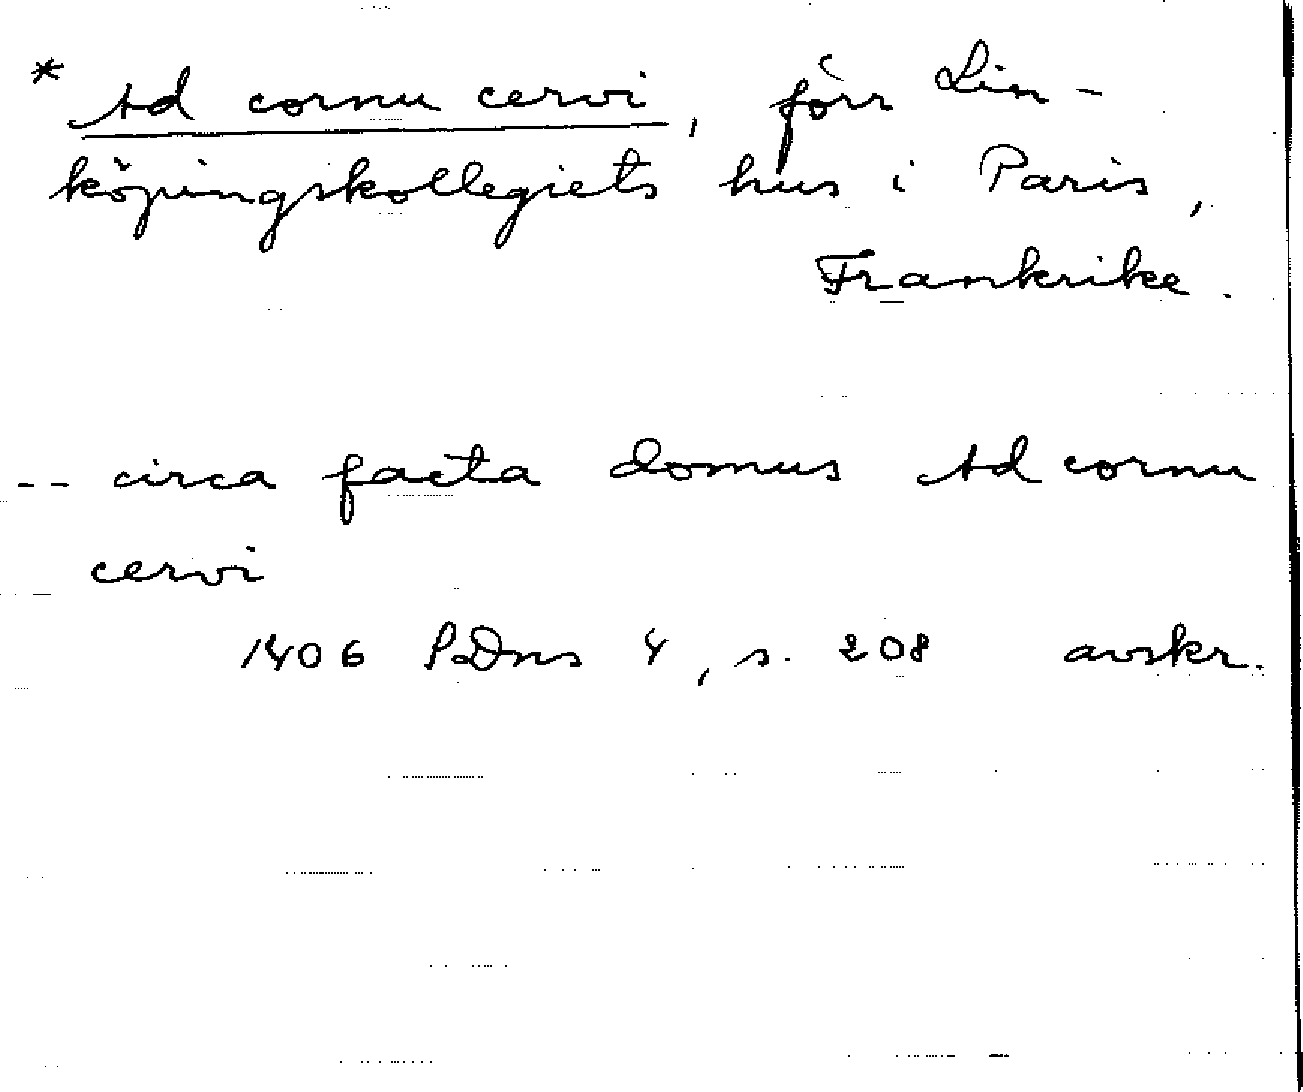 * Ad cornu cervi, förr Lin-
köpingskollegiets hus i Paris,
Frankrike.
-- circa facta domus Ad cornu
cervi
1406 PDns 4, s. 208 avskr.